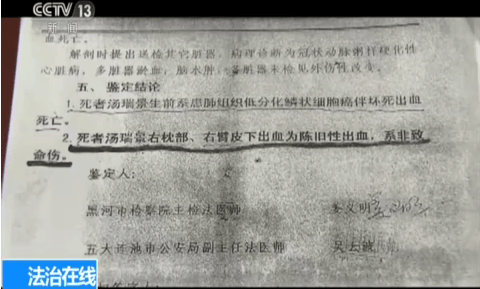 CCTV 13
新闻
血死亡。
解剖时提出送检其它脏器，病理诊断为冠状动脉粥样硬化性
心脏病，多脏器淤血，脑水肿，各脏器未检见外伤性改变。
五、鉴定结论
1.死者汤瑞景生前系患肺组织低分化鳞状细胞癌伴坏死出血
死亡。
2.死者汤瑞景右枕部、右臂皮下出血为陈旧性出血，系非致
命伤。
鉴定人：
黑河市检察院主检法医师 李义明
五大连池市公安局副主任法医师 吴云波
法治在线